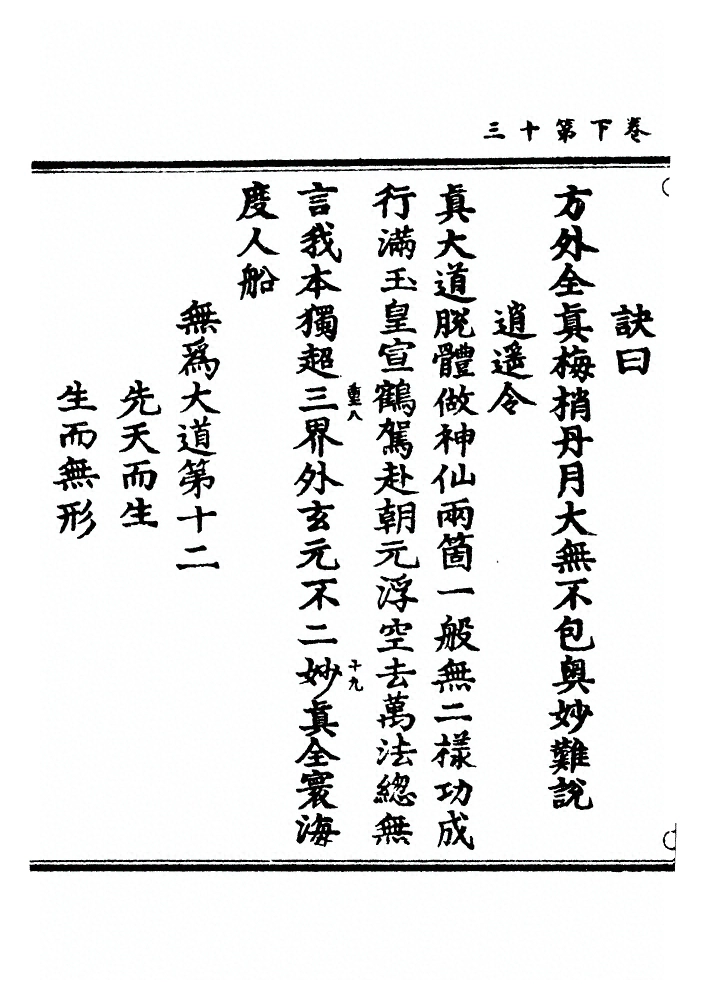 卷下第十三
訣曰
方外全真梅梢丹月大無不包奥妙難說
逍遥令
真大道脫體做神仙兩箇一般無二樣功成
行滿玉皇宣鶴駕赴朝元浮空去萬法總無
言我本獨超三界外玄元不二妙真全寰海
重八
十九
度人船
無爲大道第十二
先天而生
生而無形